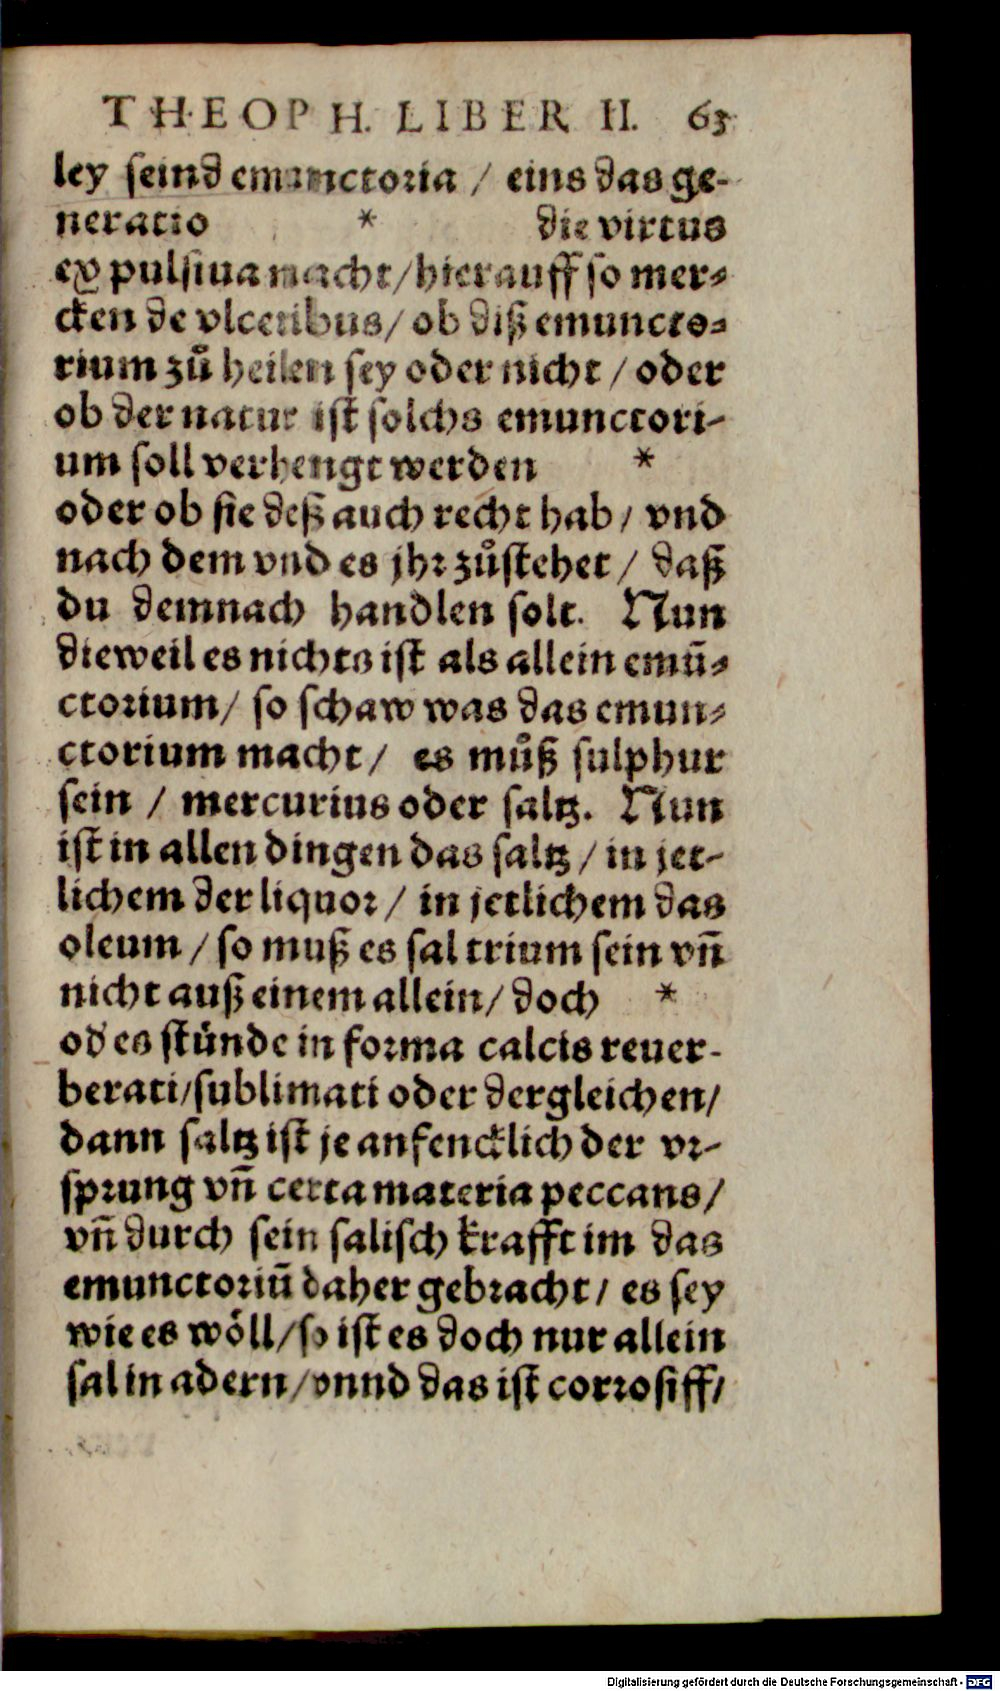 THEOPH. LIBER II. 63
ley seind emunctoria / eins das ge-
neratio * die virtus
expulsiua macht / hierauff so mer-
cken de vlceribus / ob diß emuncto-
rium zů heilen sey oder nicht / oder
ob der natur ist solchs emunctori-
um soll verhengt werden *
oder ob sie deß auch recht hab / vnd
nach dem vnd es jhr zůstehet / daß
du demnach handlen solt. Nun
dieweil es nichts ist als allein emū-
ctorium / so schaw was das emun-
ctorium macht / es můß sulphur
sein / mercurius oder saltz. Nun
ist in allen dingen das saltz / in jet-
lichem der liquor / in jetlichem das
oleum / so muß es sal trium sein vñ
nicht auß einem allein / doch *
od es stünde in forma calcis reuer-
berati / sublimati oder dergleichen /
dann saltz ist je anfencklich der vr-
sprung vñ certa materia peccans /
vñ durch sein salisch krafft im das
emunctoriū daher gebracht / es sey
wie es wöll / so ist es doch nur allein
sal in adern / vnnd das ist corrosiff /
Digitalisierung gefördert durch die Deutsche Forschungsgemeinschaft - DFG